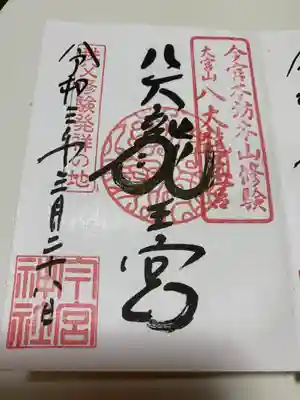 大宮山 八大龍王宮
八大龍王宮
秩父修験発祥の地
令和三年三月二十八日
今宮神社